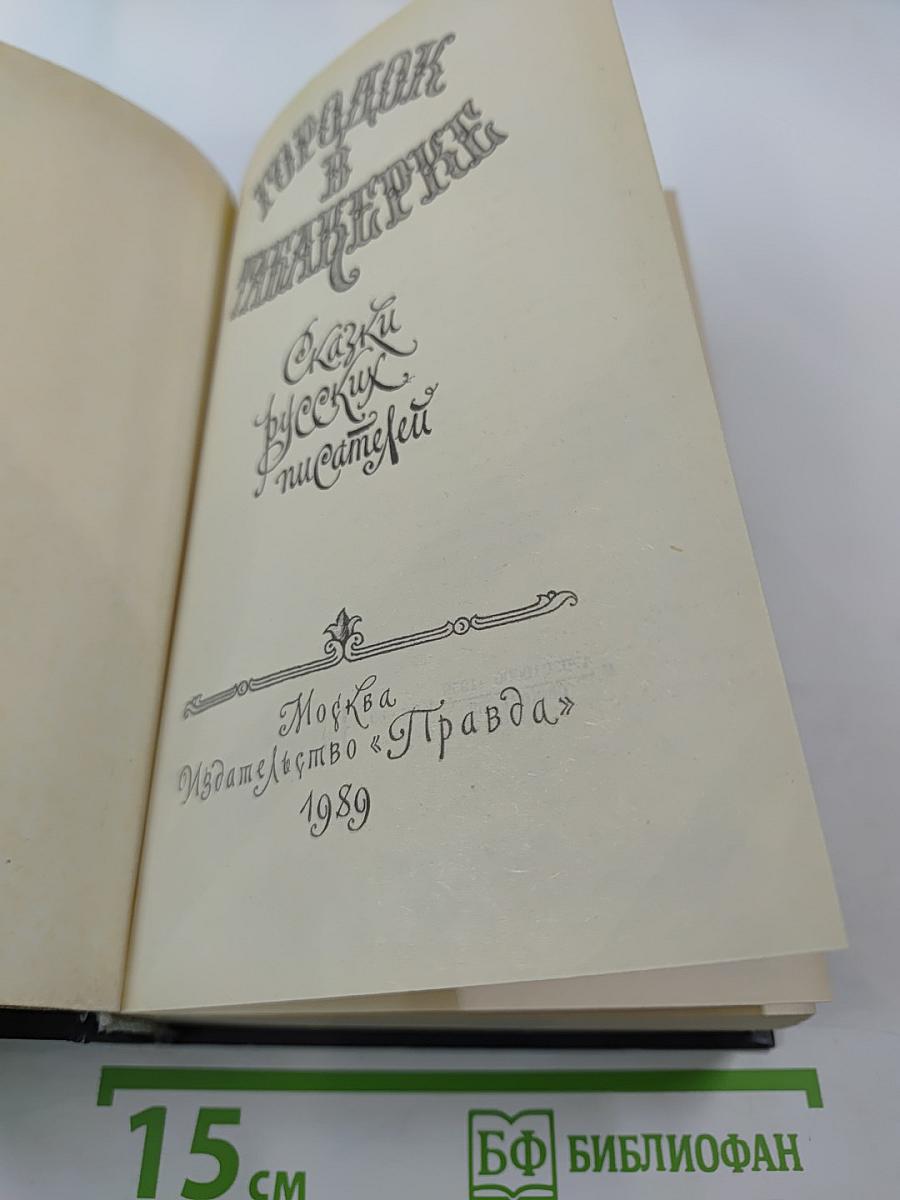 ГОРОДОК
В
ТАБАКЕРКЕ
Сказки
русских
писателей
Москва
Издательство «Правда»
1989
15 см
БФ БИБЛИОФАН